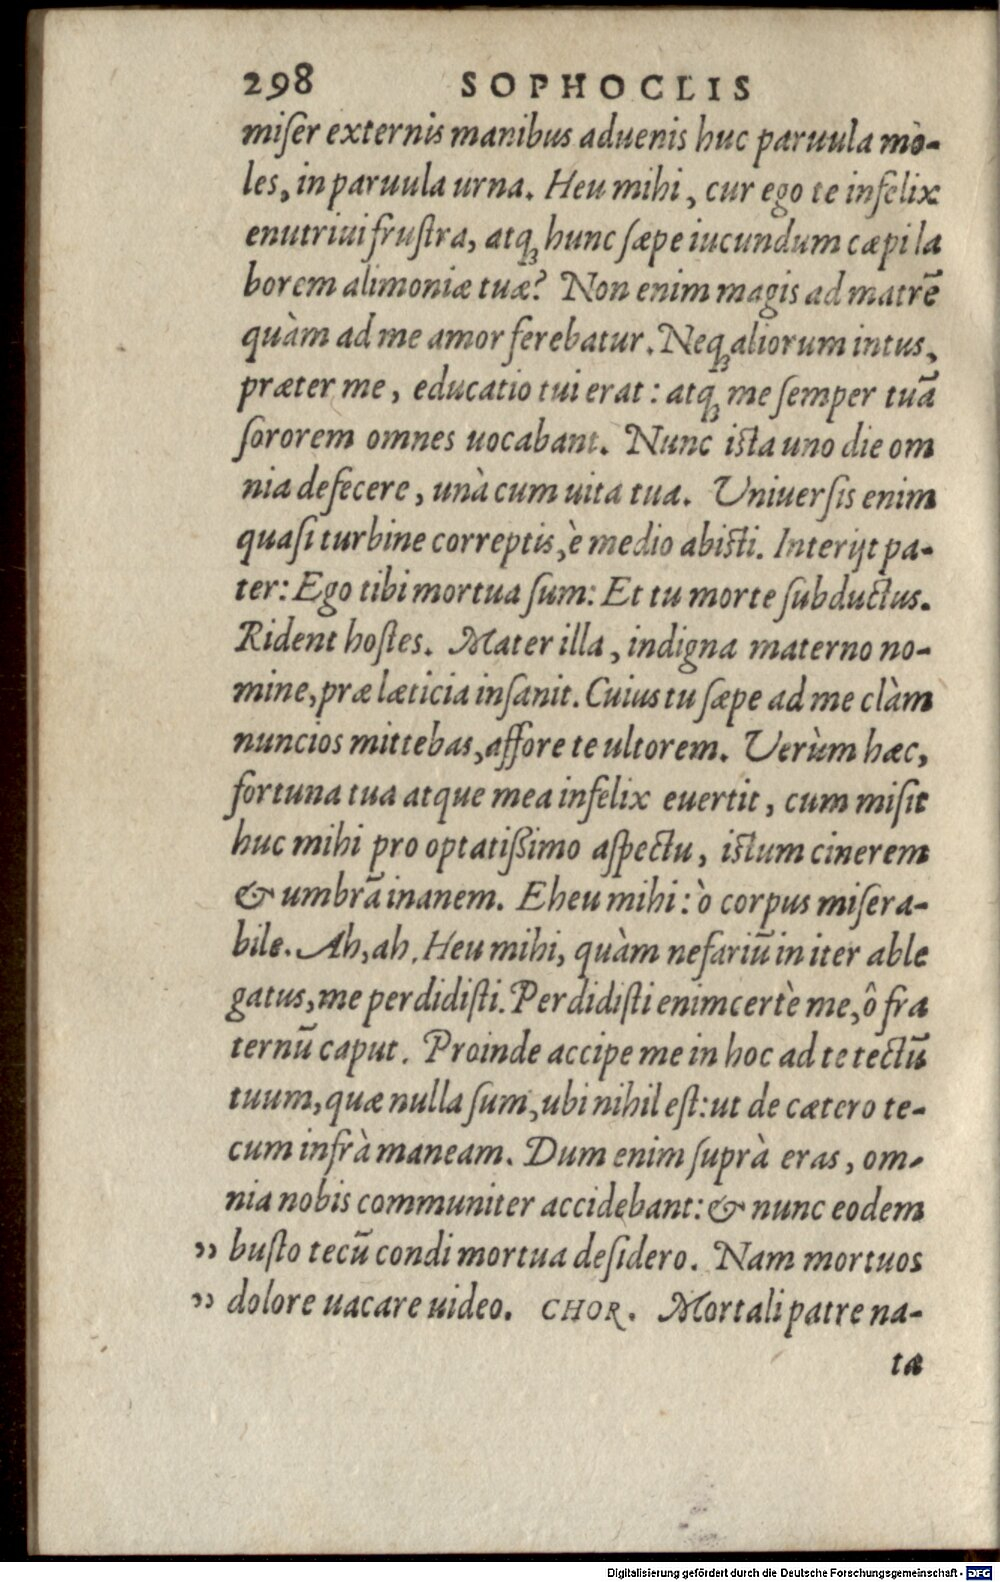 298 SOPHOCLIS
miſer externis manibus aduenis huc paruula mò-
les, in paruula urna. Heu mihi, cur ego te infelix
enutriui fruſtra, atq; hunc ſæpe iucundum cæpi la
borem alimoniæ tuæ? Non enim magis ad matrē
quàm ad me amor ferebatur. Neq; aliorum intus,
præter me, educatio tui erat: atq; me ſemper tuā
ſororem omnes uocabant. Nunc iſta uno die om
nia defecere, unà cum uita tua. Uniuerſis enim
quaſi turbine correptis, è medio abiſti. Interijt pa-
ter: Ego tibi mortua ſum: Et tu morte ſubductus.
Rident hoſtes. Mater illa, indigna materno no-
mine, præ læticia inſanit. Cuius tu ſæpe ad me clàm
nuncios mittebas, affore te ultorem. Uerùm hæc,
fortuna tua atque mea infelix euertit, cum miſit
huc mihi pro optatißimo aſpectu, iſtum cinerem
& umbrā inanem. Eheu mihi: ò corpus miſera-
bile. Ah, ah. Heu mihi, quàm nefariū in iter able
gatus, me perdidiſti. Perdidiſti enim certè me, ô fra
ternū caput. Proinde accipe me in hoc ad te tectū
tuum, quæ nulla ſum, ubi nihil eſt: ut de cætero te-
cum infrà maneam. Dum enim ſuprà eras, om-
nia nobis communiter accidebant: & nunc eodem
„ buſto tecū condi mortua deſidero. Nam mortuos
„ dolore uacare uideo. CHOR. Mortali patre na-
tæ
Digitalisierung gefördert durch die Deutsche Forschungsgemeinschaft - DFG